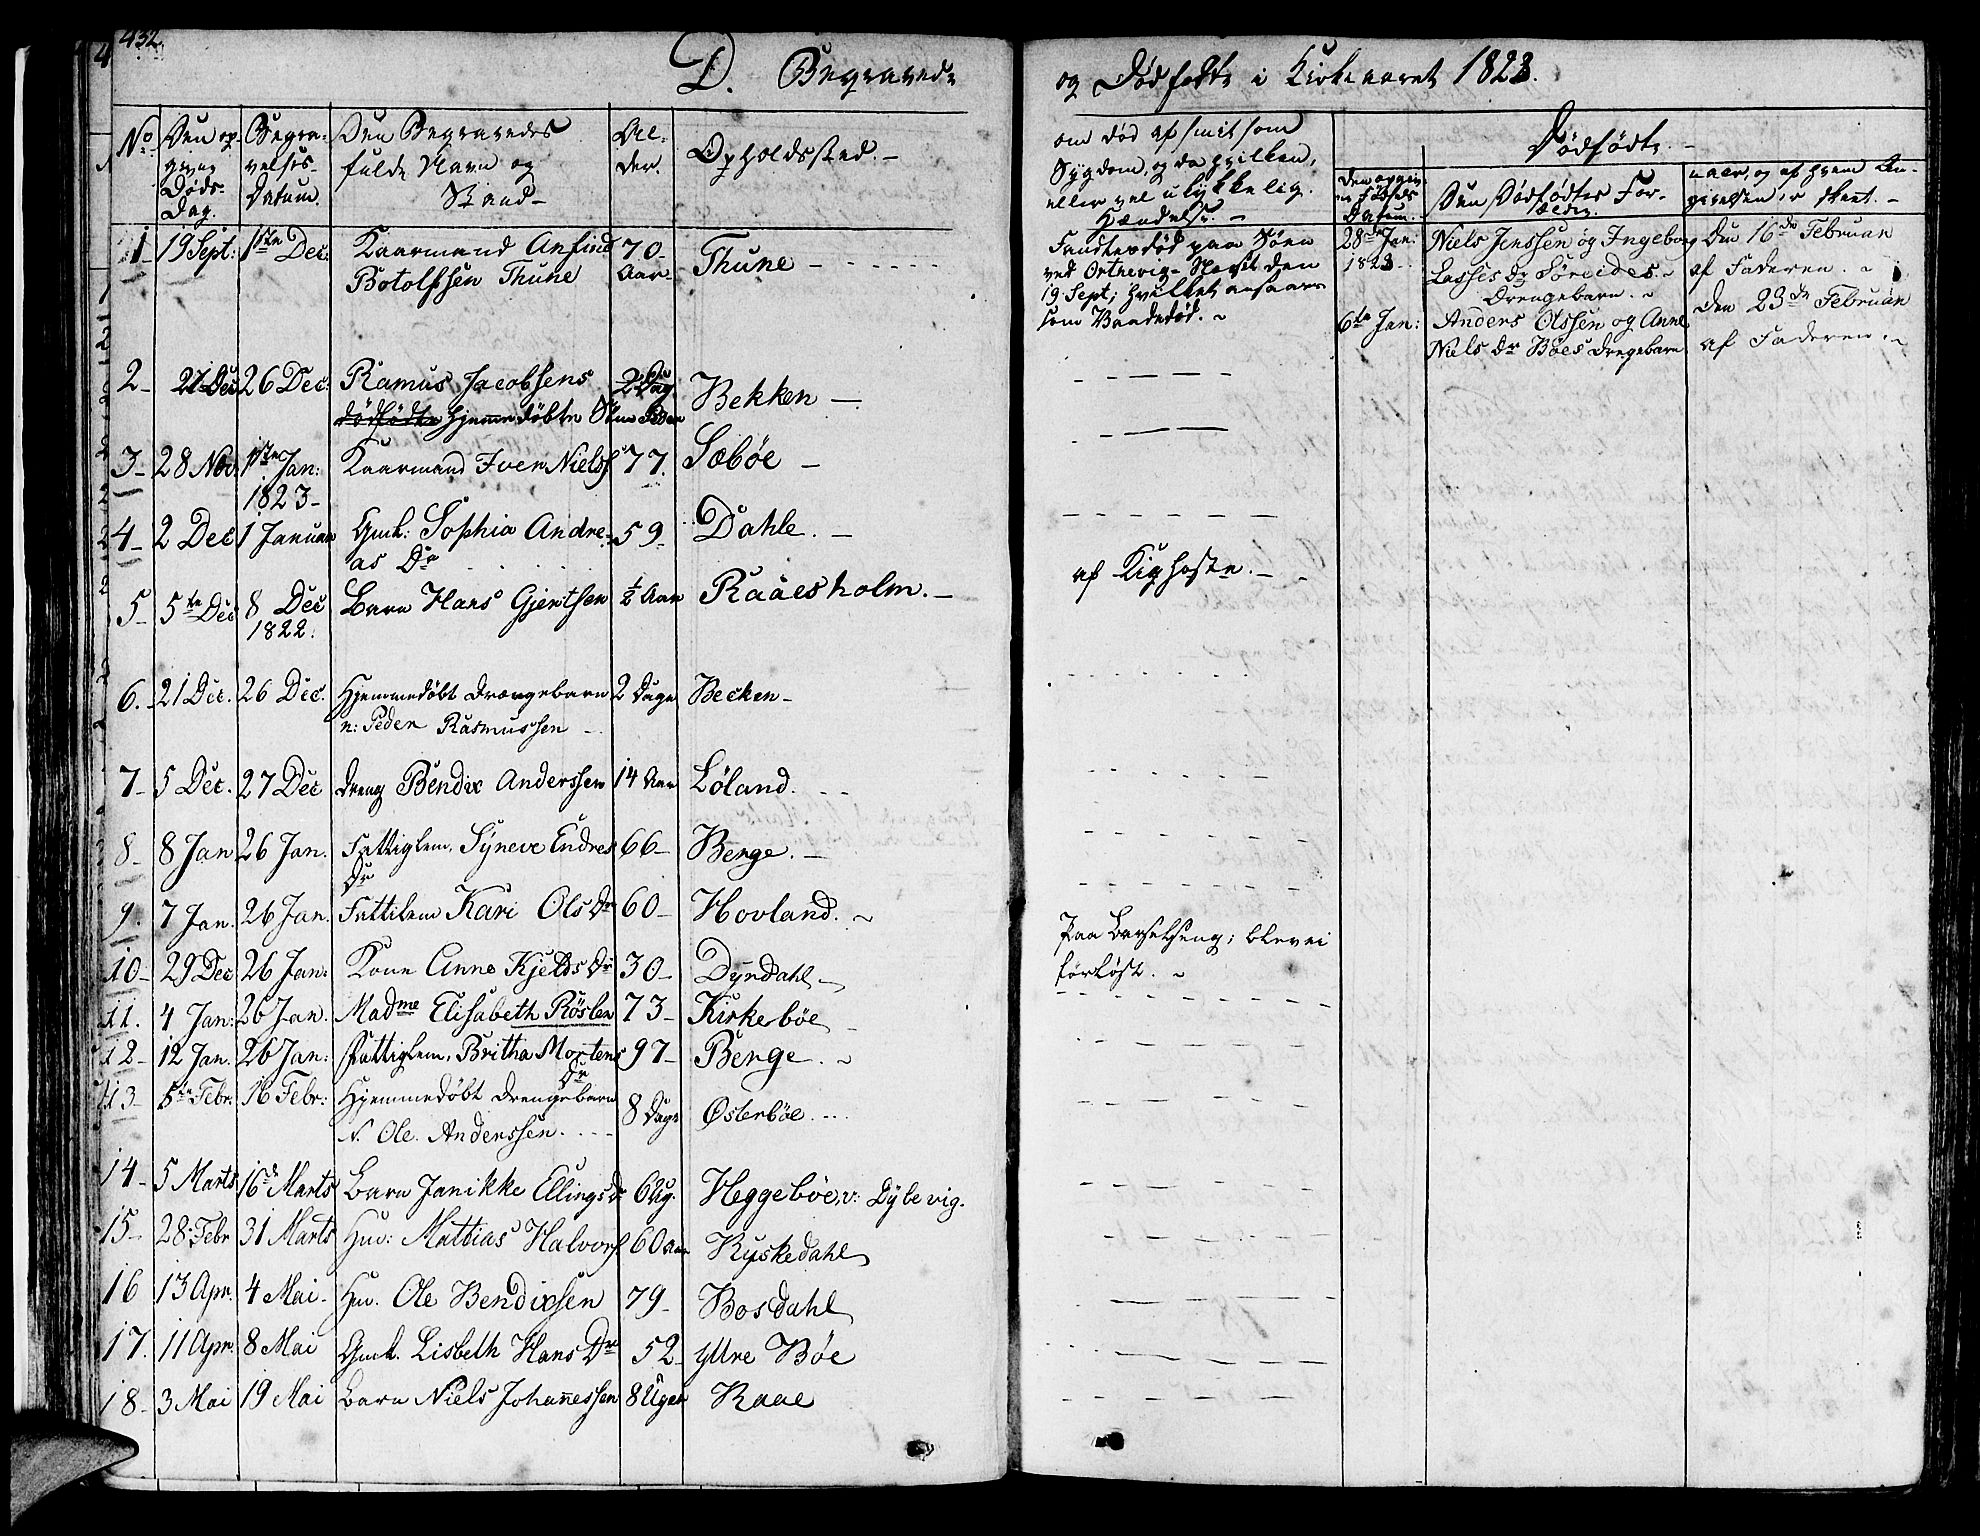 432
D. Begravede
No
Den op-
given
Døds-
Dag.
Begra-
velses-
Datum.
Den Begravedes
fulde Navn og
Stand
Al-
der.
Opholdssted.
1 19 Sept: 1ste Dec: Kaarmand Anfind 70 Thune
Botolfssen Thune Aar
2 21 Dec 26 Dec: Rasmus Jacobsens 2 Dag Bekken
dødfødte hjemmedøbte Søn Peder
3 28 Nov: 1ste Jan: Kaarmand Iver Nielss 77. Sæbøe
1823
4 2 Dec 1 Januar Gmk: Sophia Andre- 59 Dahle.
as Dr
5 5te Dec 8 Dec Barn Hans Gjertsen ½ Aar Raaesholm.
1822.
6. 21 Dec. 26 Dec. Hjemmedøbt Drengebarn 2 Dage Becken
n: Peder Rasmussen
7 5 Dec. 27 Dec Dreng Bendix Anderssen 14 Aar Løland.
8 8 Jan 26 Jan. Fattiglem. Syneve Endres 66 Berge.
Dr
9. 7 Jan. 26 Jan. Fattilem Kari Ols Dr 60 Hovland.
10 29 Dec 26 Jan: Kone Anne Kjelds Dr 30 Dyrdahl
11. 4 Jan: 26 Jan. Madme Elisabeth Røslen 73 Kirkebøe
12 12 Jan. 26 Jan: Fattiglem. Britha Mortens 97 Berge.
Dr
13 8te Febr: 16 Febr: Hjemmedøbt Drengebarn 8 Dage Østerbøe
N. Ole. Anderssen.
14 5 Marts 16de Marts Barn Janikke Ellings Dr 6 Ug. Heggebøe, v: Dyle vig.
15 28 Febr 31 Marts Huu: Mattias Halvors 60 Aar Ryskedahl
16 13 Apr. 4 Mai Huu. Ole Bendixsen 79 Bosdahl
17. 11 Apr. 8 Mai Gmk. Lisbeth Hans Dr 52 Yttre Bøe
18 3 Mai 19 Mai Barn Niels Johannessen 8 Uger Raae
og Dødfødte i Kirkeaaret 1823.
om død af smitsom
Sygdom, og da hvilken,
eller ved ulykkelig
Hændelse.
Dødfødte.
Den opgiv-
ne Fødsels
Datum.
Den Dødfødtes For-
ældre.
naar, og af hvem An-
givelsen er skeet.
Fandtes død paa Søen
ved Ortnevig- Næsset den
19 Sept; hvilket ansaaes
som Vaadedød.
28de Jan: Niels Jenssen og Ingeborg Den 16de Februar
1823 Lasses Dr Søreides af Faderen.
Drengebarn.
6te Jan: Anders Olssen og Anne den 23de Februar
Niels Dr Bøes Drengebarn af Faderen.
af Kighoste.
Paa Barselseng; blev ei
forløst.